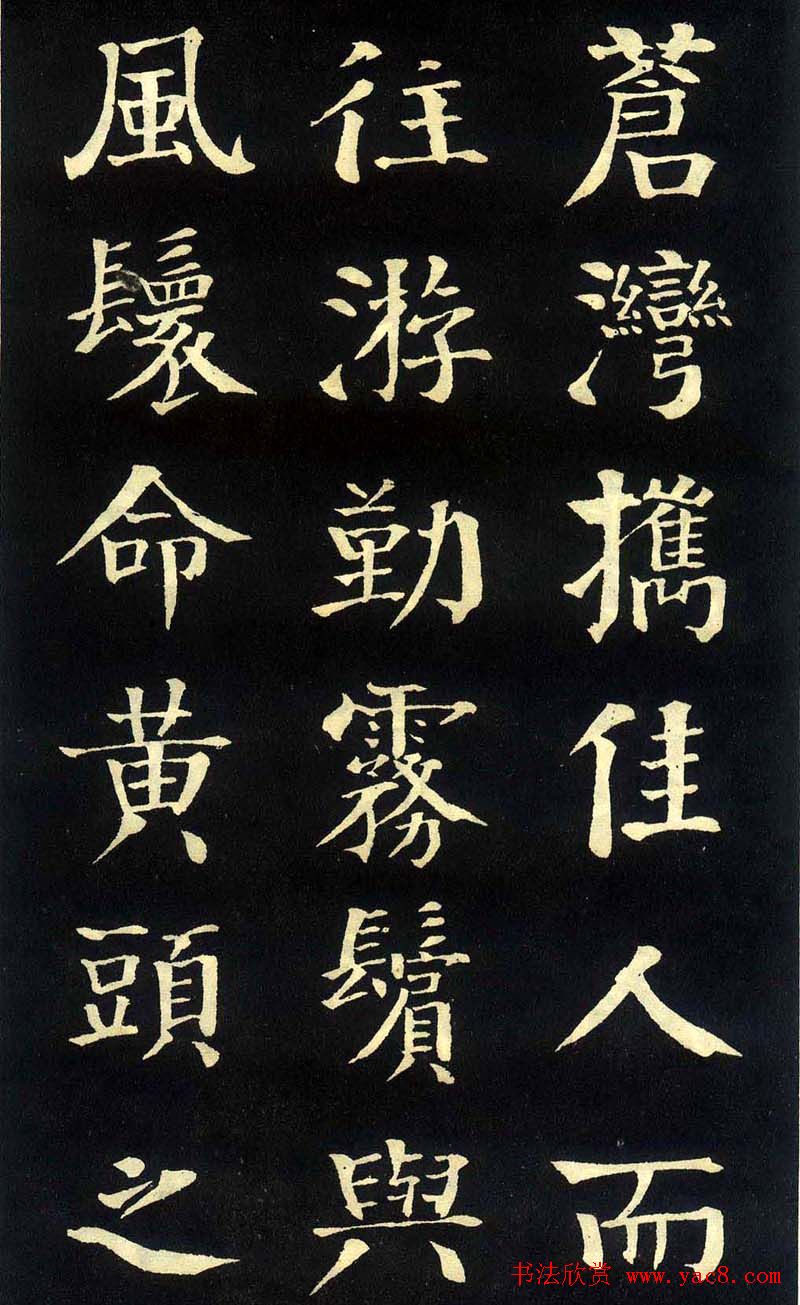 蒼灣攜佳人而
往游勤霧鬢與
風鬟命黄頭之
书法欣赏 www.yac8.com